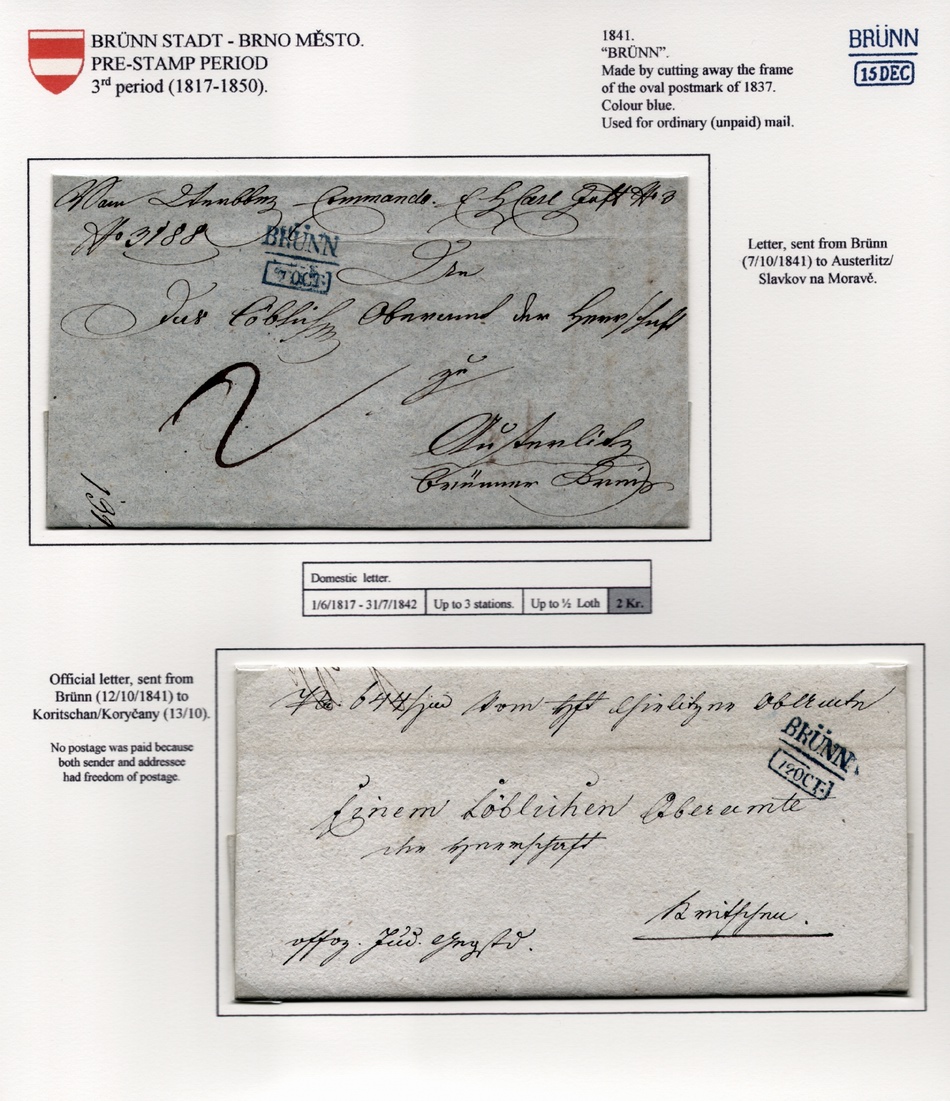 BRÜNN STADT - BRNO MĚSTO.
PRE-STAMP PERIOD
3rd period (1817-1850).
1841.
“BRÜNN”.
Made by cutting away the frame
of the oval postmark of 1837.
Colour blue.
Used for ordinary (unpaid) mail.
BRÜNN
15 DEC
Vom Commando. Carl No 3
No 3188
BRÜNN
7 OCT:
Den
Das Löbliche Oberamt der Herrschaft
zu
2
Austerlitz
Brünner Kreis
Letter, sent from Brünn
(7/10/1841) to Austerlitz/
Slavkov na Moravě.
Domestic letter.
1/6/1817 - 31/7/1842 Up to 3 stations. Up to ½ Loth 2 Kr.
Official letter, sent from
Brünn (12/10/1841) to
Koritschan/Koryčany (13/10).
No postage was paid because
both sender and addressee
had freedom of postage.
644/jud Vom Oberamte
BRÜNN
12 OCT:
Einem Löblichen Oberamte
der Herrschaft
Koritschan.
Jud.